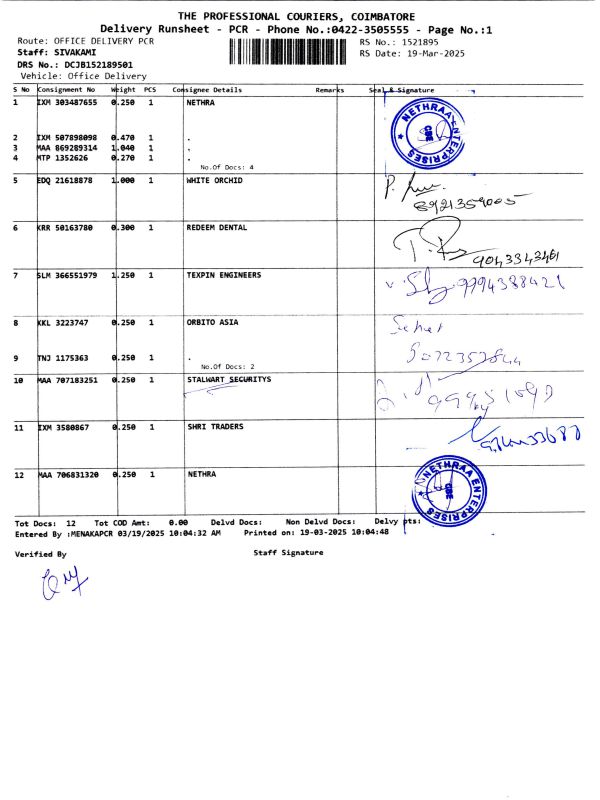 THE PROFESSIONAL COURIERS, COIMBATORE
Delivery Runsheet - PCR - Phone No.:0422-3505555 - Page No.:1
Route: OFFICE DELIVERY PCR RS No.: 1521895
Staff: SIVAKAMI RS Date: 19-Mar-2025
DRS No.: DCJB152189501
Vehicle: Office Delivery
S No Consignment No Weight PCS Consignee Details Remarks Seal & Signature
1 IXM 303487655 0.250 1 NETHRA
NETHRAA ENTERPRISES CBE
2 IXM 507898098 0.470 1 .
3 MAA 869289314 1.040 1 .
4 MTP 1352626 0.270 1 .
No.Of Docs: 4
5 EDQ 21618878 1.000 1 WHITE ORCHID
8921359005
6 KRR 50163780 0.300 1 REDEEM DENTAL
9043343461
7 SLM 366551979 1.250 1 TEXPIN ENGINEERS
9994388421
8 KKL 3223747 0.250 1 ORBITO ASIA
9 TNJ 1175363 0.250 1 .
No.Of Docs: 2
10 MAA 707183251 0.250 1 STALWART SECURITYS
11 IXM 3580867 0.250 1 SHRI TRADERS
12 MAA 706831320 0.250 1 NETHRA
NETHRAA ENTERPRISES CBE
Tot Docs: 12 Tot COD Amt: 0.00 Delvd Docs: Non Delvd Docs: Delvy pts:
Entered By :MENAKAPCR 03/19/2025 10:04:32 AM Printed on: 19-03-2025 10:04:48
Verified By Staff Signature